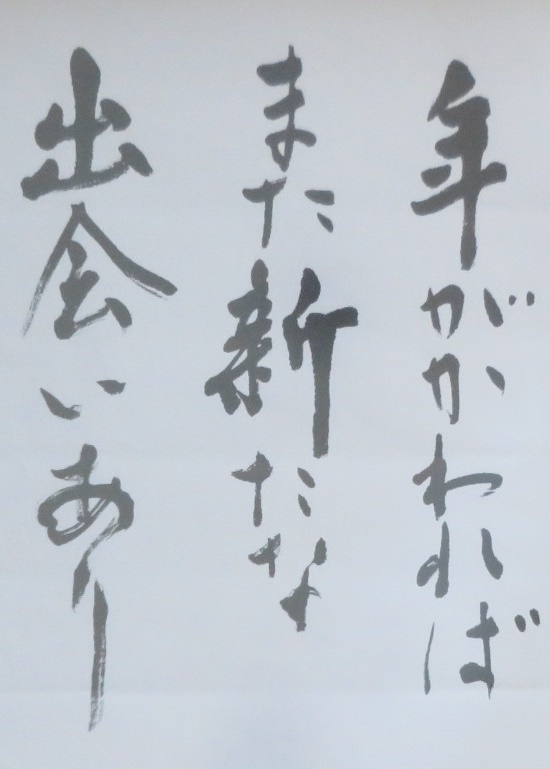 年がかわれば
また新たな
出会いあり